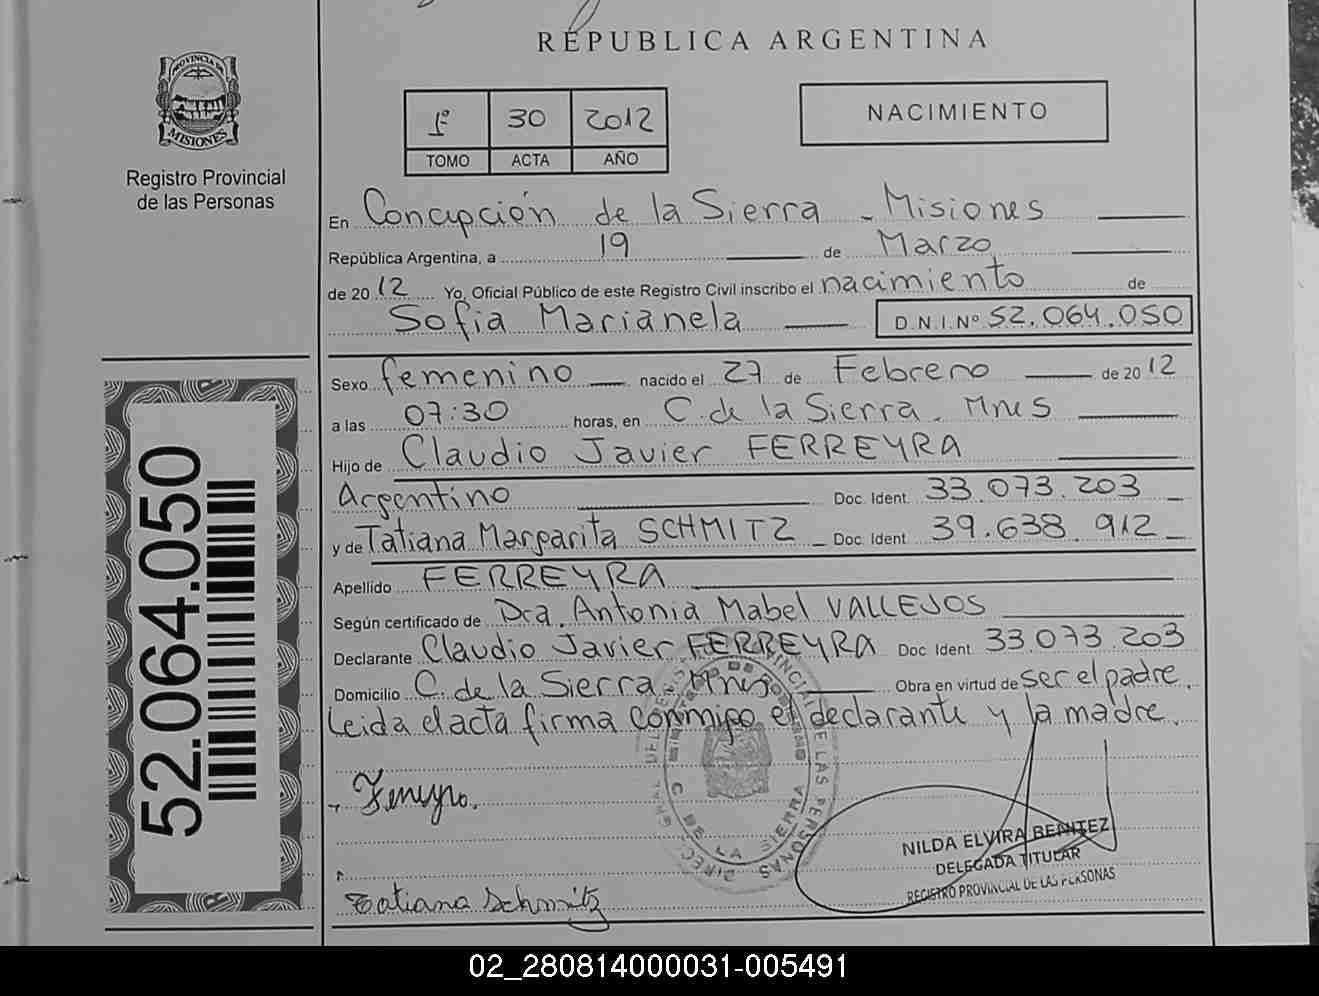 REPUBLICA ARGENTINA
PROVINCIA DE
MISIONES
Registro Provincial
de las Personas
1º 30 2012
TOMO ACTA AÑO
NACIMIENTO
En Concepción de la Sierra - Misiones
República Argentina, a 19 de Marzo
de 2012 Yo, Oficial Público de este Registro Civil inscribo el nacimiento de
Sofia Marianela D.N.I.Nº 52.064.050
Sexo femenino nacido el 27 de Febrero de 2012
a las 07:30 horas, en C. de la Sierra. Mnes
Hijo de Claudio Javier FERREYRA
Argentino Doc. Ident. 33.073.203
y de Tatiana Margarita SCHMITZ Doc. Ident. 39.638.912
Apellido FERREYRA
Según certificado de Dra. Antonia Mabel VALLEJOS
Declarante Claudio Javier FERREYRA Doc. Ident. 33.073.203
Domicilio C. de la Sierra. Mnes Obra en virtud de ser el padre.
Leida el acta firma conmigo el declarante y la madre.
52.064.050
Ferreyra.
C DE LA SIERRA
DE LAS PERSONAS
NILDA ELVIRA BENITEZ
DELEGADA TITULAR
REGISTRO PROVINCIAL DE LAS PERSONAS
Tatiana Schmitz
02_280814000031-005491